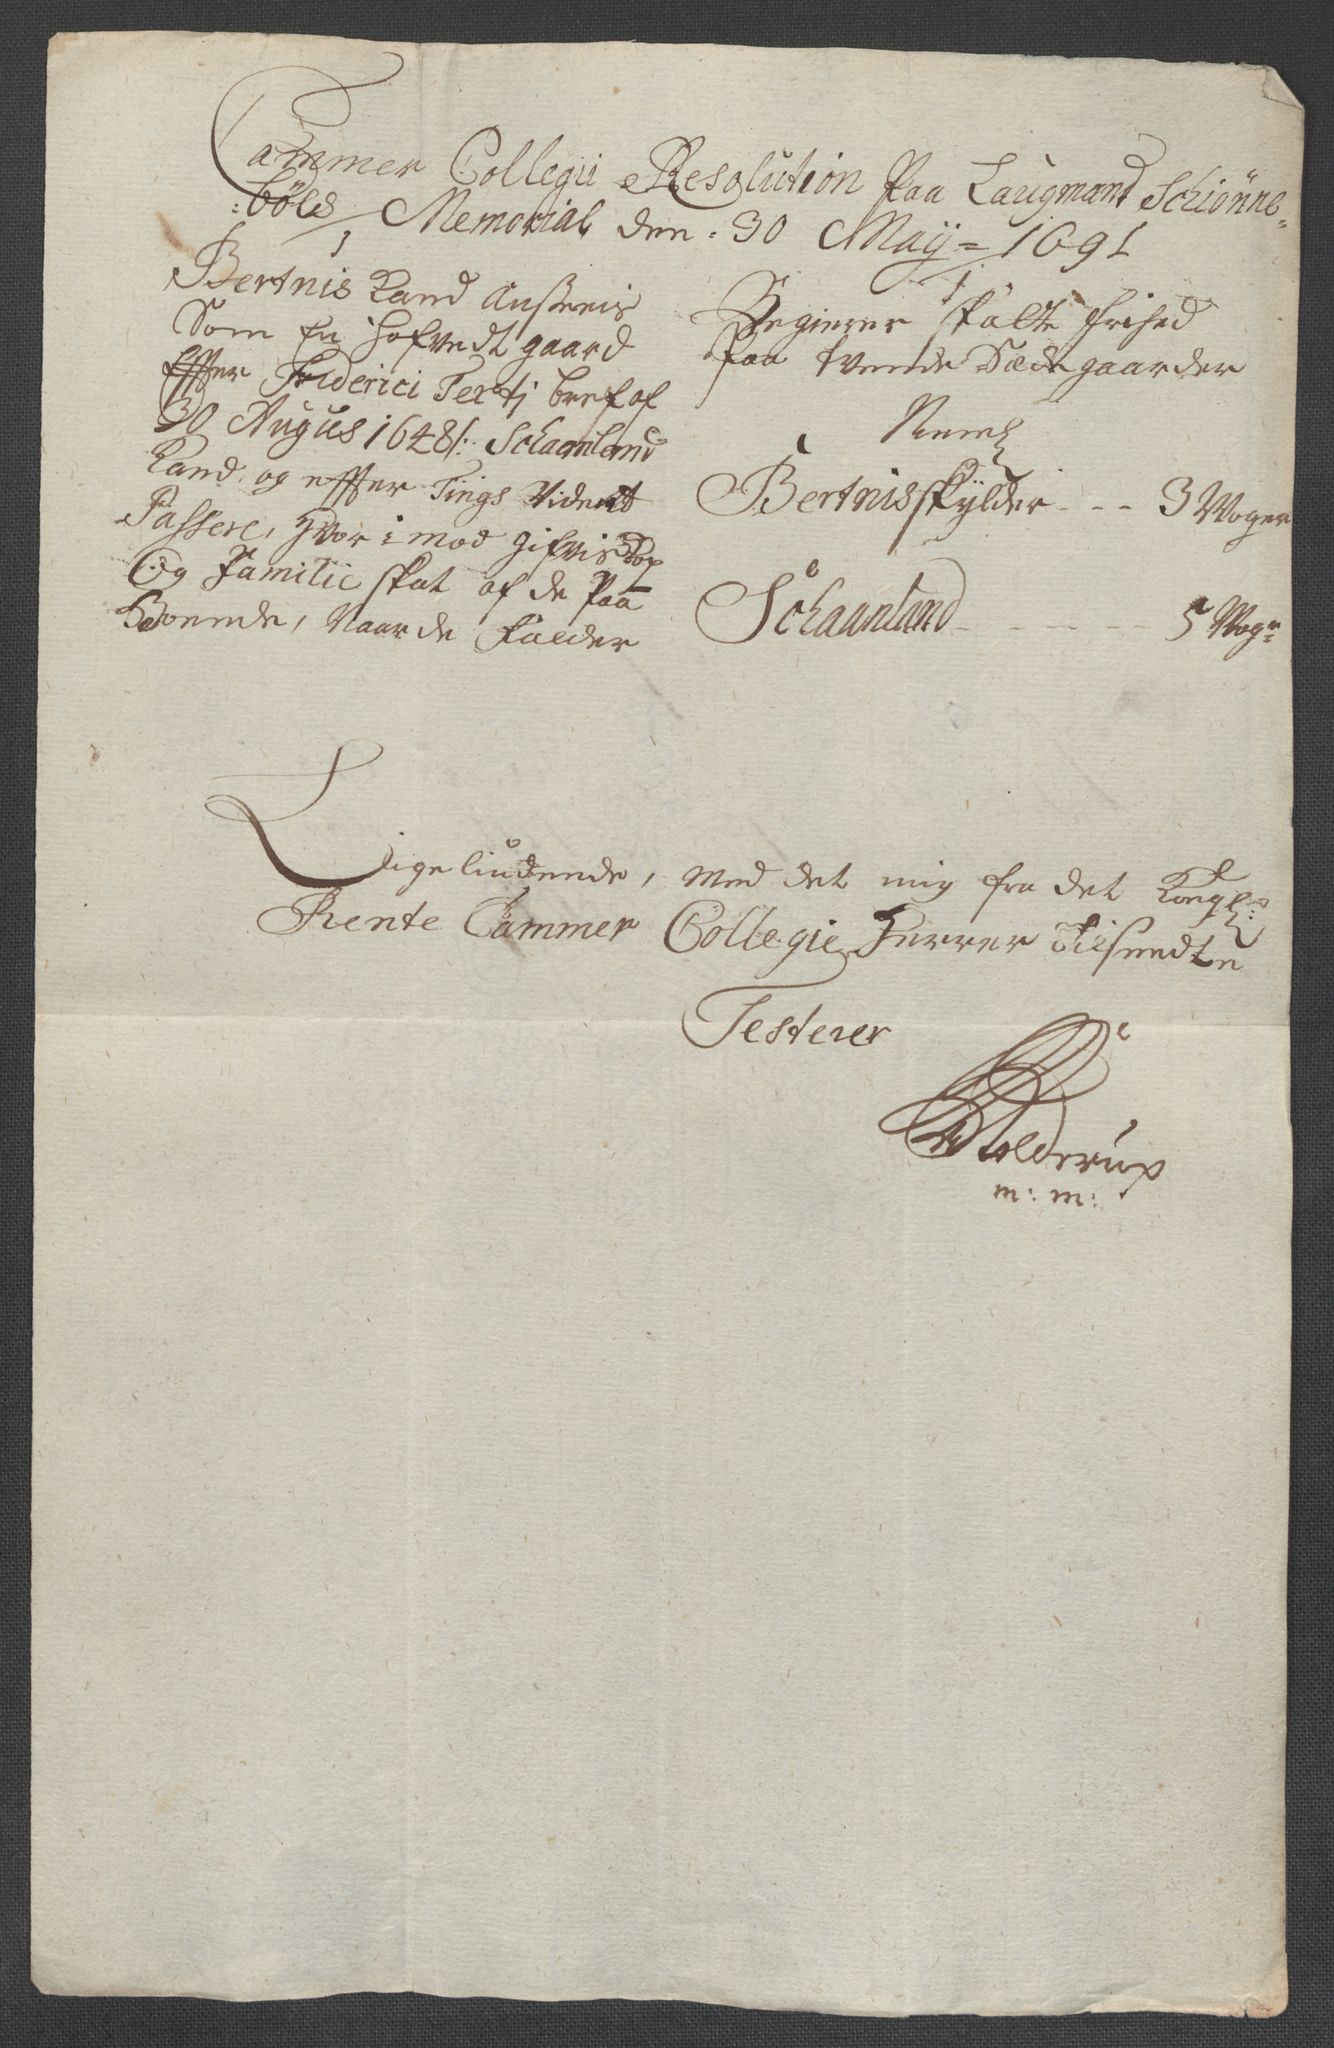 Cammer Collegii Resolution Paa Laugmand Schiønne-
:bøls Memorial den: 30 Maij = 1691
1
Bertnis Kand Ansseeis
Som En hofvedt gaard
Effter Friderici Tertj bref af
30 Augus 1648/: Schaanland
Kand og effter Tings Vident
Passere, Hvor i mod gifvis Kop
Og Familie skat af de Paa
Boende, Naar de falder
1
Begierer skatte frihed
Paa tvende Sæde gaarder
Neml
Bertnis skylder - - - 3 Woger
Schaanland - - - - - 5 Wogr
Lige liudende, med det mig fra det Kongl:
Rente Cammer Collegie Herrer Tilsendte
Testerer
Wolderup
m: m: